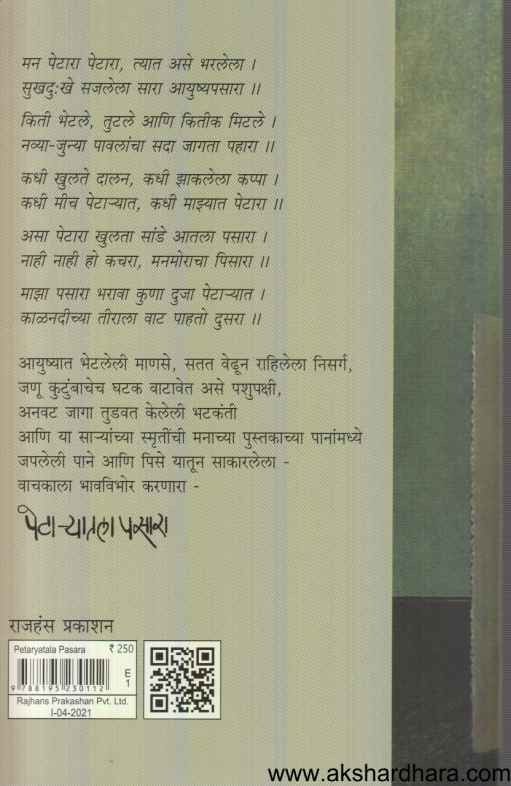 मन पेटारा पेटारा, त्यात असे भरलेला ।
सुखदुःखे सजलेला सारा आयुष्यपसारा ॥
किती भेटले, तुटले आणि कितीक मिटले ।
नव्या-जुन्या पावलांचा सदा जागता पहारा ॥
कधी खुलते दालन, कधी झाकलेला कप्पा ।
कधी मीच पेटाऱ्यात, कधी माझ्यात पेटारा ॥
असा पेटारा खुलता सांडे आतला पसारा ।
नाही नाही हो कचरा, मनमोराचा पिसारा ॥
माझा पसारा भरावा कुणा दुजा पेटाऱ्यात ।
काळनदीच्या तीराला वाट पाहतो दुसरा ॥
आयुष्यात भेटलेली माणसे, सतत वेढून राहिलेला निसर्ग,
जणू कुटुंबाचेच घटक वाटावेत असे पशुपक्षी,
अनवट जागा तुडवत केलेली भटकंती
आणि या साऱ्यांच्या स्मृतींची मनाच्या पुस्तकाच्या पानांमध्ये
जपलेली पाने आणि पिसे यातून साकारलेला -
वाचकाला भावविभोर करणारा -
पेटाऱ्यातला पसारा
राजहंस प्रकाशन
Petaryatala Pasara ₹ 250
E
1
9 788195 230112
Rajhans Prakashan Pvt. Ltd.
I-04-2021
www.akshardhara.com